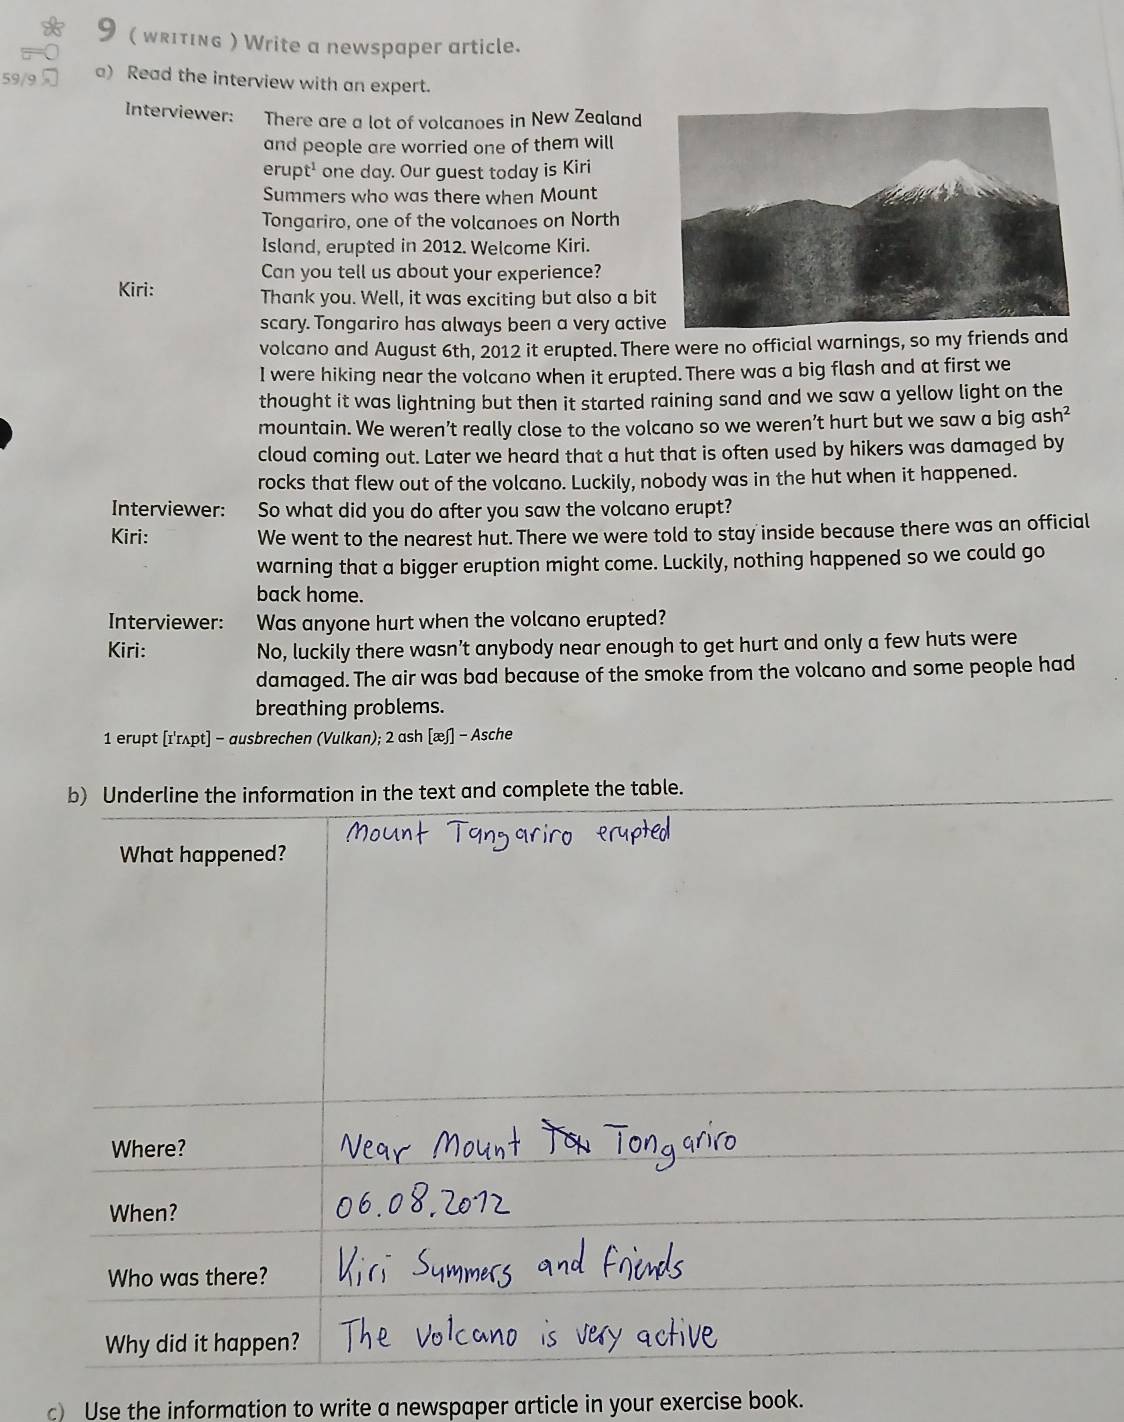 9 ( WRITING ) Write a newspaper article.
59/9
a) Read the interview with an expert.
Interviewer: There are a lot of volcanoes in New Zealand
and people are worried one of them will
erupt¹ one day. Our guest today is Kiri
Summers who was there when Mount
Tongariro, one of the volcanoes on North
Island, erupted in 2012. Welcome Kiri.
Can you tell us about your experience?
Kiri: Thank you. Well, it was exciting but also a bit
scary. Tongariro has always been a very active
volcano and August 6th, 2012 it erupted. There were no official warnings, so my friends and
I were hiking near the volcano when it erupted. There was a big flash and at first we
thought it was lightning but then it started raining sand and we saw a yellow light on the
mountain. We weren't really close to the volcano so we weren't hurt but we saw a big ash²
cloud coming out. Later we heard that a hut that is often used by hikers was damaged by
rocks that flew out of the volcano. Luckily, nobody was in the hut when it happened.
Interviewer: So what did you do after you saw the volcano erupt?
Kiri: We went to the nearest hut. There we were told to stay inside because there was an official
warning that a bigger eruption might come. Luckily, nothing happened so we could go
back home.
Interviewer: Was anyone hurt when the volcano erupted?
Kiri: No, luckily there wasn't anybody near enough to get hurt and only a few huts were
damaged. The air was bad because of the smoke from the volcano and some people had
breathing problems.
1 erupt [ɪ'rʌpt] – ausbrechen (Vulkan); 2 ash [æʃ] – Asche
b) Underline the information in the text and complete the table.
What happened? Mount Tangariro erupted
Where? Near Mount Tongariro
When? 06.08.2012
Who was there? Kiri Summers and Friends
Why did it happen? The Volcano is very active
c) Use the information to write a newspaper article in your exercise book.